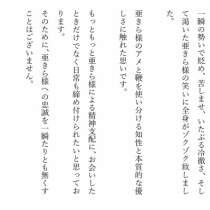 一瞬の勢いで貶め、苦しませ、いたぶる冷徹さ、そし
て渇いた亜きら様の笑いに全身がゾクゾク致しまし
た。
亜きら様のアメと鞭を使い分ける知性と本質的な優
しさに触れた思いです。
もっともっと亜きら様による精神支配に、お会いした
ときだけでなく日常も締め付けられたいと思ってお
ります。
そのために、亜きら様への忠誠を一瞬たりとも無くす
ことはございません。